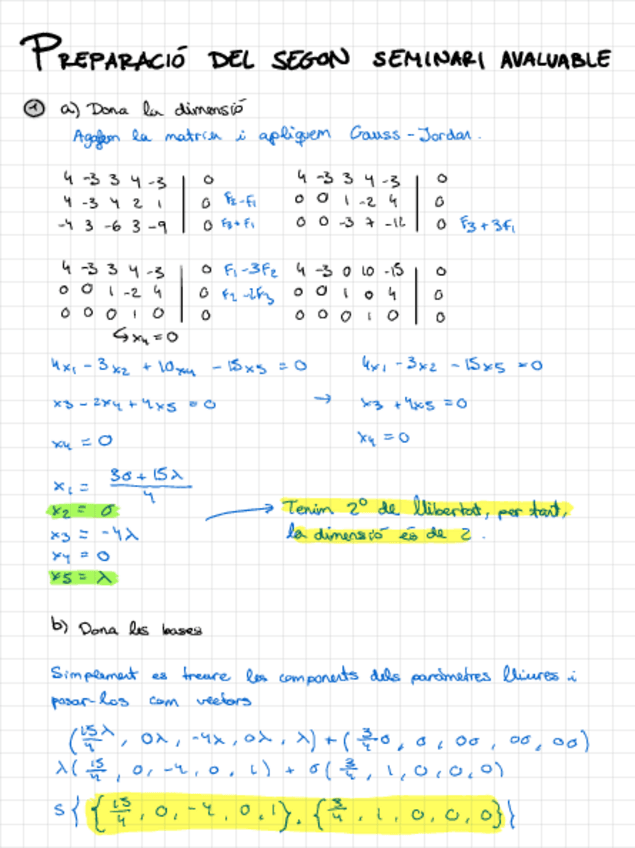 PREPARACIÓ DEL SEGON SEMINARI AVALUABLE
1 a) Dona la dimensió
Agafem la matriu i apliquem Gauss-Jordan.
4 -3 3 4 -3 | 0
4 -3 4 2 1 | 0 F2-F1
-4 3 -6 3 -9 | 0 F3+F1
4 -3 3 4 -3 | 0
0 0 1 -2 4 | 0
0 0 -3 7 -12 | 0 F3+3F1
4 -3 3 4 -3 | 0 F1-3F2
0 0 1 -2 4 | 0 F2-2F3
0 0 0 1 0 | 0
↳ x4=0
4 -3 0 10 -15 | 0
0 0 1 0 4 | 0
0 0 0 1 0 | 0
4x1 - 3x2 + 10x4 - 15x5 = 0
x3 - 2x4 + 4x5 = 0
x4 = 0
→
4x1 - 3x2 - 15x5 = 0
x3 + 4x5 = 0
x4 = 0
x1 = (3σ + 15λ)/4
x2 = σ
x3 = -4λ
x4 = 0
x5 = λ
Tenim 2º de llibertat, per tant,
la dimensió és de 2.
b) Dona les bases
Simplement es treure les components dels paràmetres lliures i
posar-los com vectors
(15λ/4, 0λ, -4λ, 0λ, λ) + (3/4σ, σ, 0σ, 0σ, 0σ)
λ(15/4, 0, -4, 0, 1) + σ(3/4, 1, 0, 0, 0)
S{{15/4, 0, -4, 0, 1}, {3/4, 1, 0, 0, 0}}